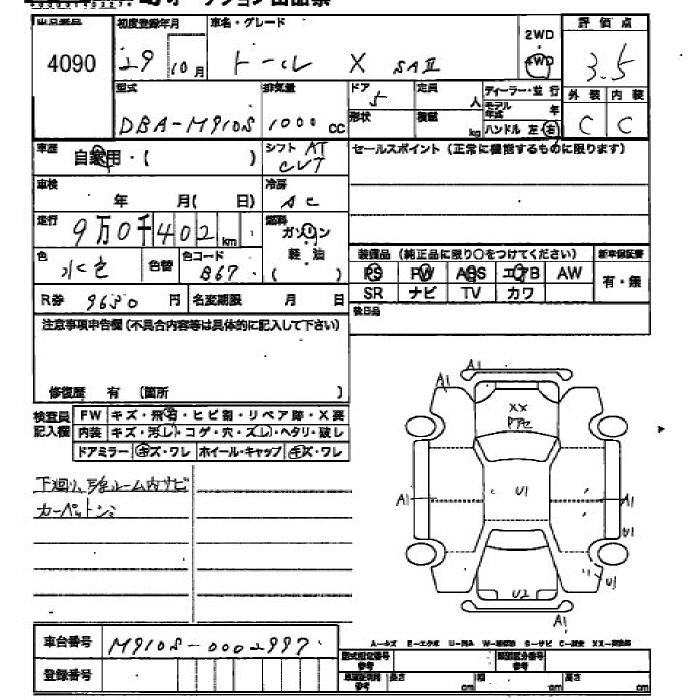 初度登録年月 車名・グレード 評価点
4090 29 10月 トール X SAⅡ 2WD ・ 4WD 3.5
型式 排気量 ドア 定員 ディーラー・並行 外装 内装
DBA-M910S 1000cc 5 人 モデル年式 年 C C
形状 積載 kg ハンドル 左・右
車歴 自家用・( ) シフト AT CVT セールスポイント(正常に機能するものに限ります)
車検 年 月( 日) 冷房 AC
走行 9万0千402km 燃料 ガソリン 軽・油 ( )
色 水色 色替 色コード B67 装備品(純正品に限り○をつけてください) 新車保証書
PS PW ABS エアB AW 有・無
R券 9680円 名変期限 月 日 SR ナビ TV カワ
注意事項申告欄(不具合内容等は具体的に記入して下さい) 後日品
修復歴 有 (箇所 )
検査員記入欄 FW キズ・飛石・ヒビ割・リペア跡・X要
内装 キズ・汚レ・コゲ・穴・ズレ・ヘタリ・破レ
ドアミラー キズ・ワレ ホイール・キャップ キズ・ワレ
A1
A1
XX
A1 U1 A1
U1
U1
U2
A1
車台番号 M910S-0002997
登録番号
型式指定番号 参考 類別区分番号 参考
長さ cm 幅 cm 高さ cm